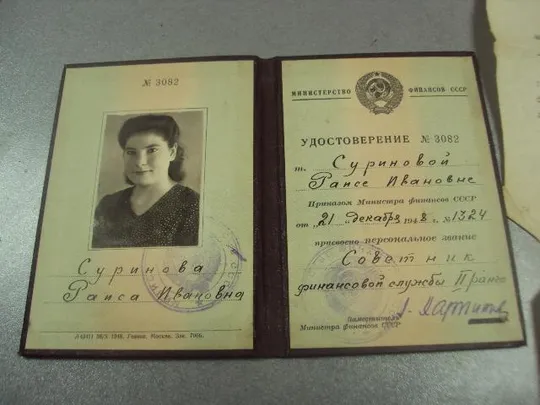 № 3082
Суринова
Раиса Ивановна
МИНИСТЕРСТВО ФИНАНСОВ СССР
УДОСТОВЕРЕНИЕ № 3082
т. Суриновой
Раисе Ивановне
Приказом Министра финансов СССР
от "21" декабря 1948 г. № 1324
присвоено персональное звание
Советник
финансовой службы II ранга
Министра финансов СССР